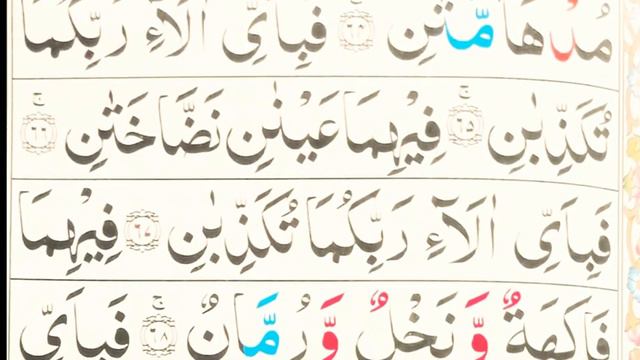 مُدْهَآ مَّتٰنِ ۝٦٤ فَبِاَيِّ اٰلَآءِ رَبِّكُمَا
تُكَذِّبٰنِ ۝٦٥ۚ فِيْهِمَا عَيْنٰنِ نَضَّاخَتٰنِ ۝٦٦ۚ
فَبِاَيِّ اٰلَآءِ رَبِّكُمَا تُكَذِّبٰنِ ۝٦٧ فِيْهِمَا
فَاكِهَةٌ وَّ نَخْلٌ وَّ رُمَّانٌ ۝٦٨ۚ فَبِاَيِّ